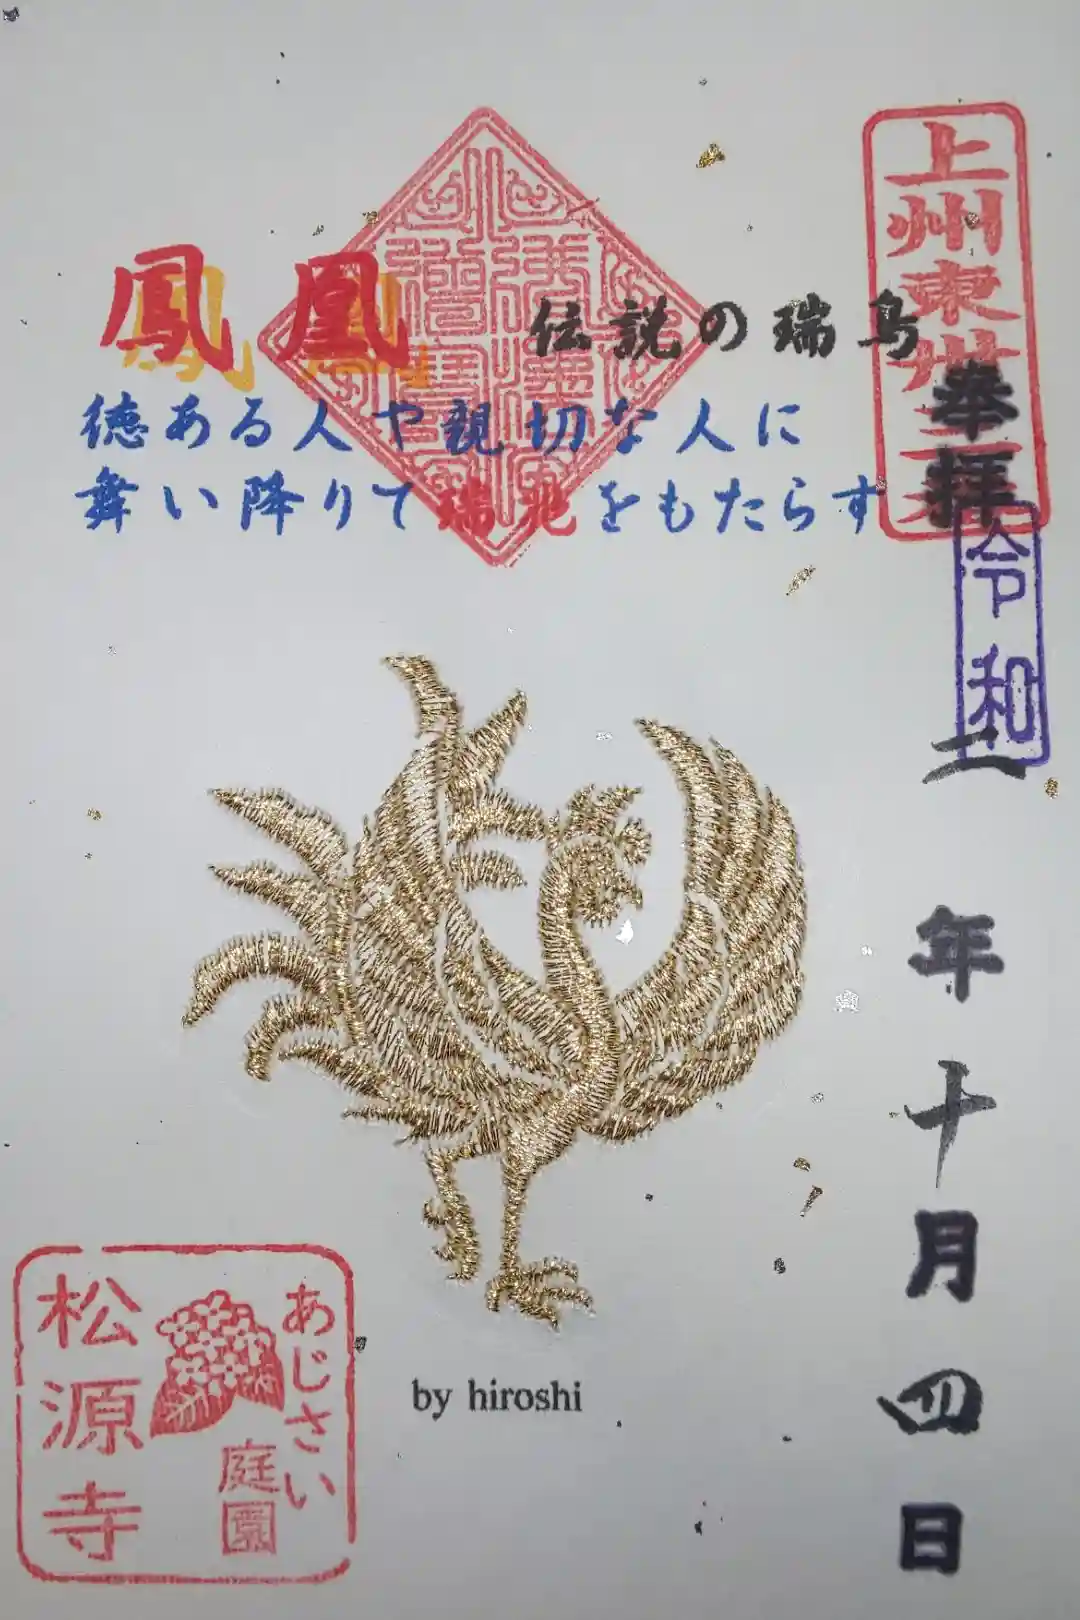 上州東廿三番
奉拝
令和
二年十月四日
鳳凰
伝説の瑞鳥
徳ある人や親切な人に
舞い降りて瑞兆をもたらす
あじさい
庭園
松源寺
by hiroshi